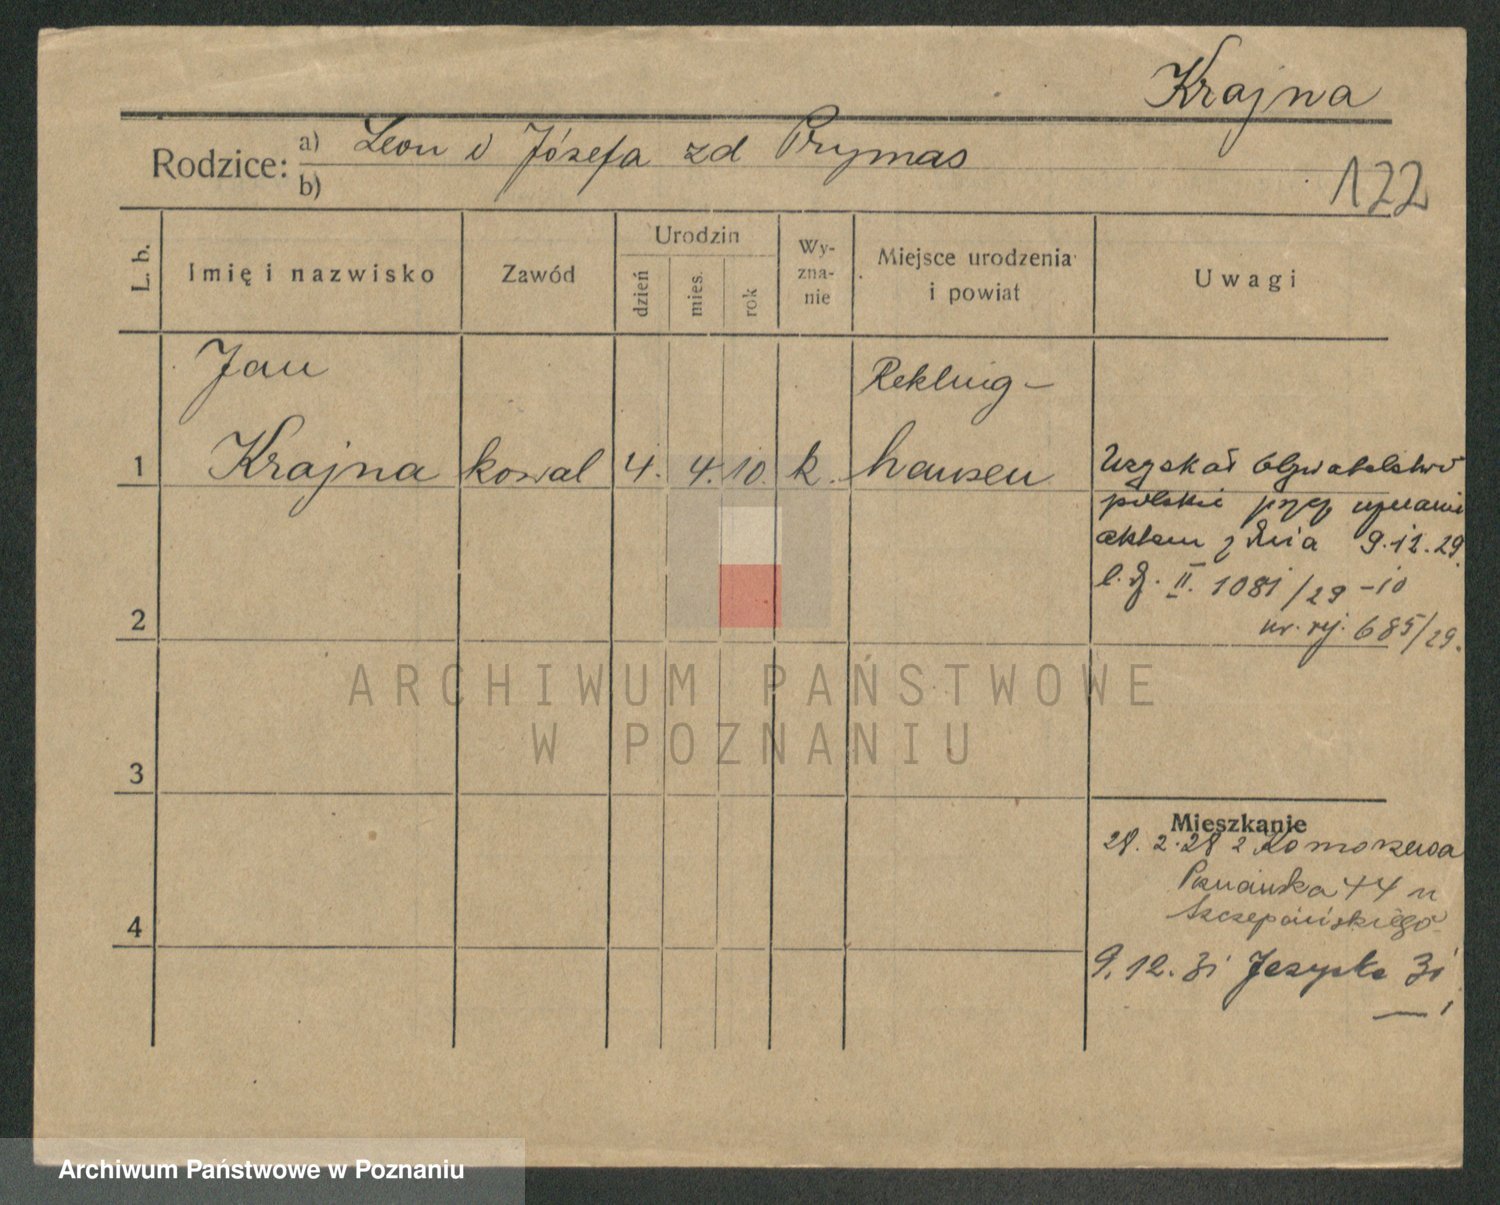 Krajna
Rodzice: a) Leon i Józefa zd Prymas
b)
122
L. b.
Imię i nazwisko
Zawód
Urodzin
dzień
mies.
rok
Wy-
zna-
nie
Miejsce urodzenia
i powiat
Uwagi
Jan
Krajna
kowal
4.
4.
10.
k.
Rekling-
hausen
1
Uzyskał obywatelstwo
polskie przez
aktem z dnia 9.12.29
l.dz. II. 1081/29 -10
nr. rej. 685/29.
2
3
4
Mieszkanie
28. 2. 28 z Komorzewa
Poznańska 44 u
Szczepańskiego
9. 12. 31 31
ARCHIWUM PAŃSTWOWE
W POZNANIU
Archiwum Państwowe w Poznaniu